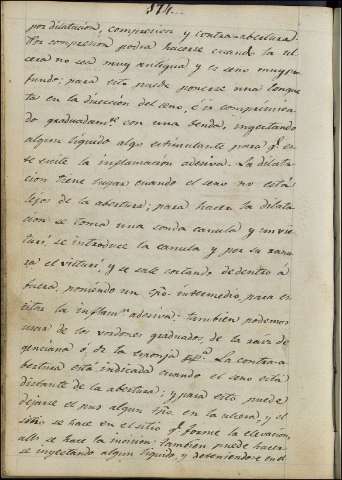 574..
por dilatacion, compresion y contra-abertura.
Por compresion podra hacerse cuando la ul
cera no sea muy antigua y el seno muy pro
fundo; para esto puede ponerse una longue
ta en la direccion del seno, é ir comprimien
do graduadam.te con una venda, inyectando
algun liquido algo estimulante para q.e es
te ecsite la inflamacion adesiva. La dilata
cion tiene lugar cuando el seno no está
lejos de la abertura; para hacer la dilata
cion se toma una sonda canula y un vis
turí, se introduce la canula y por su ranu
ra el visturí, y se sale cortando de dentro á
fuera, poniendo un cpo. intermedio, para ev
itar la inflam.n adesiva: tambien podemos
usar de los cordones graduados, de la raiz de
genciana ó de la esponja pp.a La contra-a
bertura está indicada cuando el seno está
distante de la abertura; y para esto puede
dejarse el pus algun tpo. en la ulcera, y el
se hace en el sitio q.e forme la elevacion,
alli se hace la incision: tambien puede hacer
se inyectando algun liquido, y deteniendo-e en el